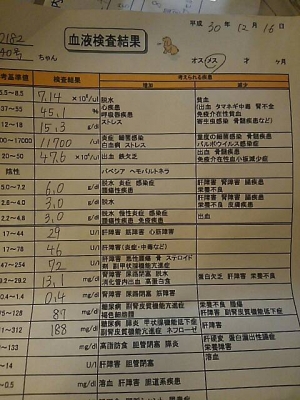 平成 30年 12月 16日
2182
40号
血液検査結果
ちゃん オス・メス 才 ヶ月
考基準値 検査結果 考えられる疾患
増加 減少
5.5～8.5 7.14 ×10⁶/ul 脱水 貧血
37～55 45.1 % 心疾患 (出血 タマネギ中毒 腎不全
呼吸器疾患 免疫介在性貧血
12～18 15.3 g/dl ストレス 寄生虫感染 骨髄疾患など)
～17000 11700 /ul 炎症 細菌感染 重度の細菌感染 骨髄疾患
白血病 ストレス パルボウイルス感染症
20～50 47.6 ×10⁴/ul 出血 鉄欠乏 出血 骨髄疾患
免疫介在性血小板減少症
陰性 バベシア ヘモバルトネラ
5.0～7.2 6.0 g/dl 脱水 炎症 感染症 肝障害 腎障害 腸疾患
腫瘍性疾患 栄養不良
2.6～4.0 3.0 g/dl 脱水 肝障害 腎障害 腸疾患
栄養不良 皮膚疾患
2.2～4.8 3.0 g/dl 脱水 慢性炎症 感染症 出血
腫瘍性疾患 免疫疾患
17～44 29 U/l 肝障害 筋障害 心筋障害
17～78 46 U/l 肝障害(炎症・中毒など)
47～254 72 U/l 肝障害 胆管閉塞
9.2～29.2 13.1 mg/dl 腎障害 尿路閉塞 脱水 蛋白欠乏 肝障害 栄養不良
消化管内出血 高蛋白食
0.4～1.4 0.4 mg/dl 腎障害 尿路閉塞 筋障害
75～128 87 mg/dl 糖尿病 副腎皮質機能亢進症 栄養不良 腫瘍
褐色細胞腫 肝障害 副腎皮質機能低下症
～312 188 mg/dl 糖尿病 膵炎 甲状腺機能低下症 肝障害
副腎皮質機能亢進症 ネフローゼ
～133 mg/dl 高脂肪食 胆管閉塞 膵炎 肝硬変 蛋白漏出性腸症
栄養障害
～14 U/l 肝障害 胆管閉塞 溶血
～0.5 mg/dl 溶血 肝障害 胆道系疾患